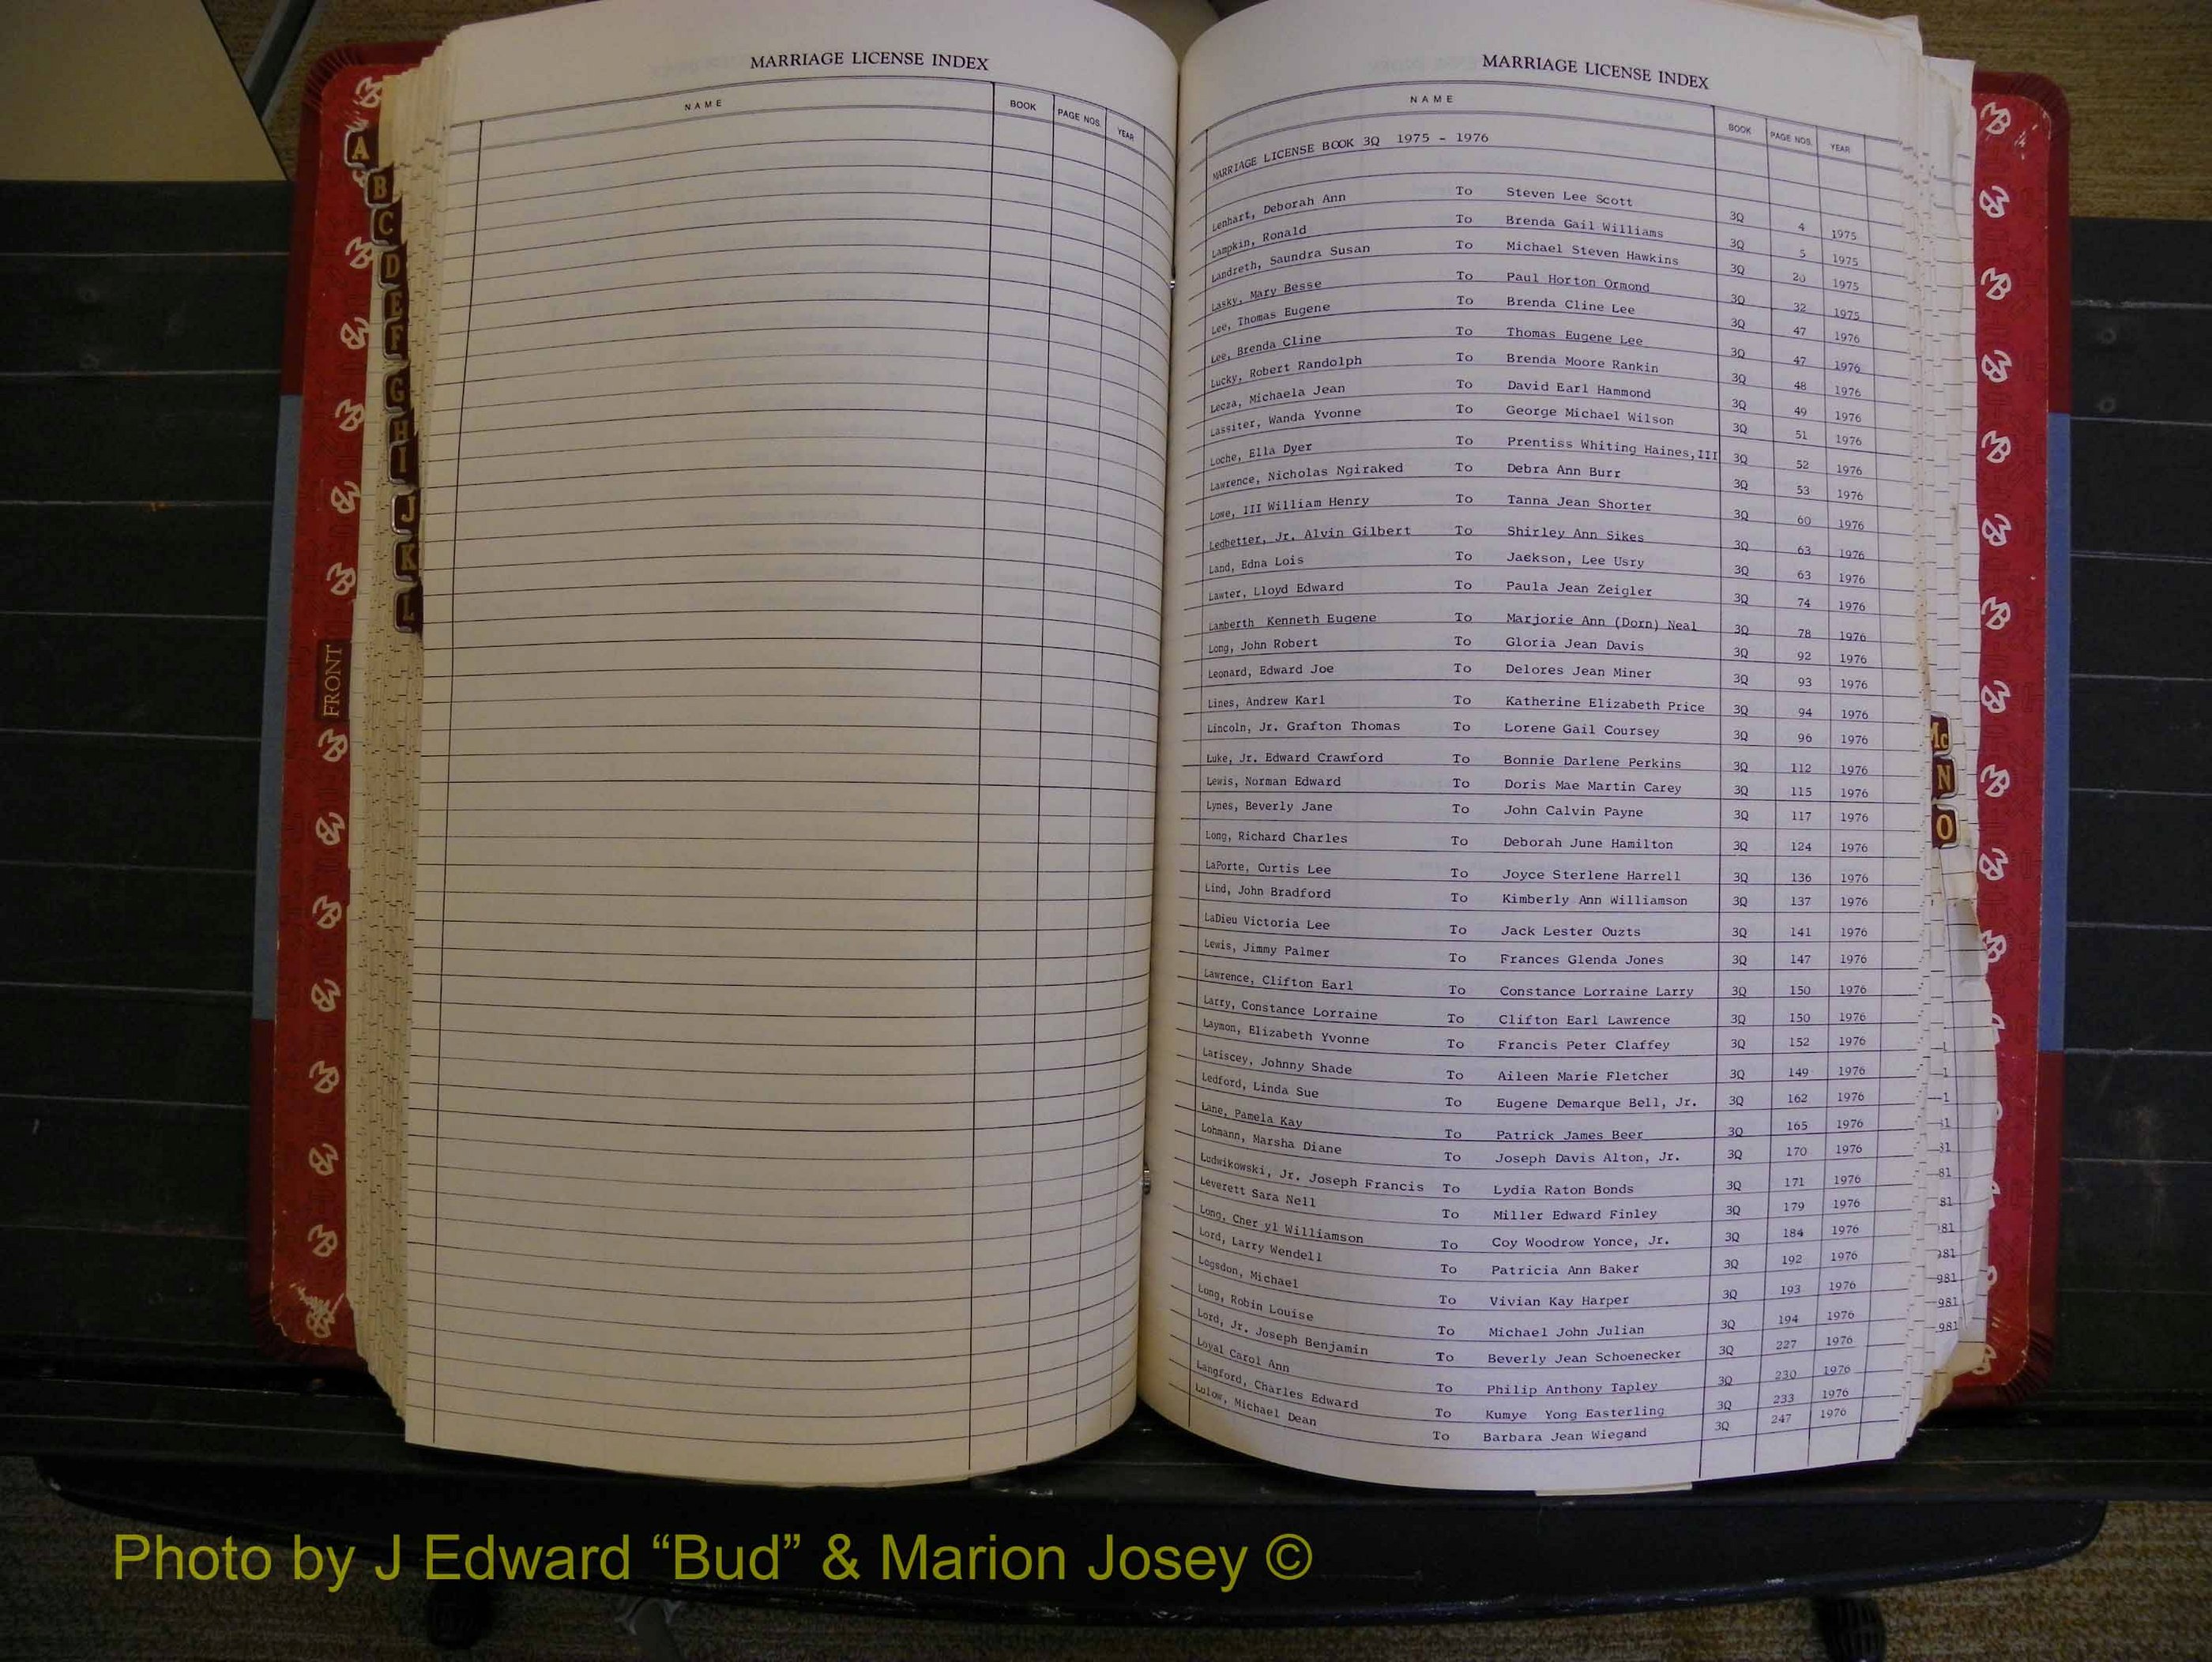 MARRIAGE LICENSE INDEX
NAME BOOK PAGE NOS. YEAR
A
B
C
D
E
F
G
H
I
J
K
L
FRONT
MARRIAGE LICENSE INDEX
NAME BOOK PAGE NOS. YEAR
MARRIAGE LICENSE BOOK 3Q 1975 - 1976
Lenhart, Deborah Ann To Steven Lee Scott 3Q 4 1975
Lampkin, Ronald To Brenda Gail Williams 3Q 5 1975
Landreth, Saundra Susan To Michael Steven Hawkins 3Q 20 1975
Lasky, Mary Besse To Paul Horton Ormond 3Q 32 1975
Lee, Thomas Eugene To Brenda Cline Lee 3Q 47 1976
Lee, Brenda Cline To Thomas Eugene Lee 3Q 47 1976
Lucky, Robert Randolph To Brenda Moore Rankin 3Q 48 1976
Lecza, Michaela Jean To David Earl Hammond 3Q 49 1976
Lassiter, Wanda Yvonne To George Michael Wilson 3Q 51 1976
Loche, Ella Dyer To Prentiss Whiting Haines,III 3Q 52 1976
Lawrence, Nicholas Ngiraked To Debra Ann Burr 3Q 53 1976
Lowe, III William Henry To Tanna Jean Shorter 3Q 60 1976
Ledbetter, Jr. Alvin Gilbert To Shirley Ann Sikes 3Q 63 1976
Land, Edna Lois To Jackson, Lee Usry 3Q 63 1976
Lawter, Lloyd Edward To Paula Jean Zeigler 3Q 74 1976
Lamberth Kenneth Eugene To Marjorie Ann (Dorn) Neal 3Q 78 1976
Long, John Robert To Gloria Jean Davis 3Q 92 1976
Leonard, Edward Joe To Delores Jean Miner 3Q 93 1976
Lines, Andrew Karl To Katherine Elizabeth Price 3Q 94 1976
Lincoln, Jr. Grafton Thomas To Lorene Gail Coursey 3Q 96 1976
Luke, Jr. Edward Crawford To Bonnie Darlene Perkins 3Q 112 1976
Lewis, Norman Edward To Doris Mae Martin Carey 3Q 115 1976
Lynes, Beverly Jane To John Calvin Payne 3Q 117 1976
Long, Richard Charles To Deborah June Hamilton 3Q 124 1976
LaPorte, Curtis Lee To Joyce Sterlene Harrell 3Q 136 1976
Lind, John Bradford To Kimberly Ann Williamson 3Q 137 1976
LaDieu Victoria Lee To Jack Lester Ouzts 3Q 141 1976
Lewis, Jimmy Palmer To Frances Glenda Jones 3Q 147 1976
Lawrence, Clifton Earl To Constance Lorraine Larry 3Q 150 1976
Larry, Constance Lorraine To Clifton Earl Lawrence 3Q 150 1976
Laymon, Elizabeth Yvonne To Francis Peter Claffey 3Q 152 1976
Lariscey, Johnny Shade To Aileen Marie Fletcher 3Q 149 1976
Ledford, Linda Sue To Eugene Demarque Bell, Jr. 3Q 162 1976
Lane, Pamela Kay To Patrick James Beer 3Q 165 1976
Lohmann, Marsha Diane To Joseph Davis Alton, Jr. 3Q 170 1976
Ludwikowski, Jr. Joseph Francis To Lydia Raton Bonds 3Q 171 1976
Leverett Sara Nell To Miller Edward Finley 3Q 179 1976
Long, Cher yl Williamson To Coy Woodrow Yonce, Jr. 3Q 184 1976
Lord, Larry Wendell To Patricia Ann Baker 3Q 192 1976
Logsdon, Michael To Vivian Kay Harper 3Q 193 1976
Long, Robin Louise To Michael John Julian 3Q 194 1976
Lord, Jr. Joseph Benjamin To Beverly Jean Schoenecker 3Q 227 1976
Loyal Carol Ann To Philip Anthony Tapley 3Q 230 1976
Langford, Charles Edward To Kumye Yong Easterling 3Q 233 1976
Lulow, Michael Dean To Barbara Jean Wiegand 3Q 247 1976
Mc
N
O
81
81
81
981
981
981
Photo by J Edward “Bud” & Marion Josey ©